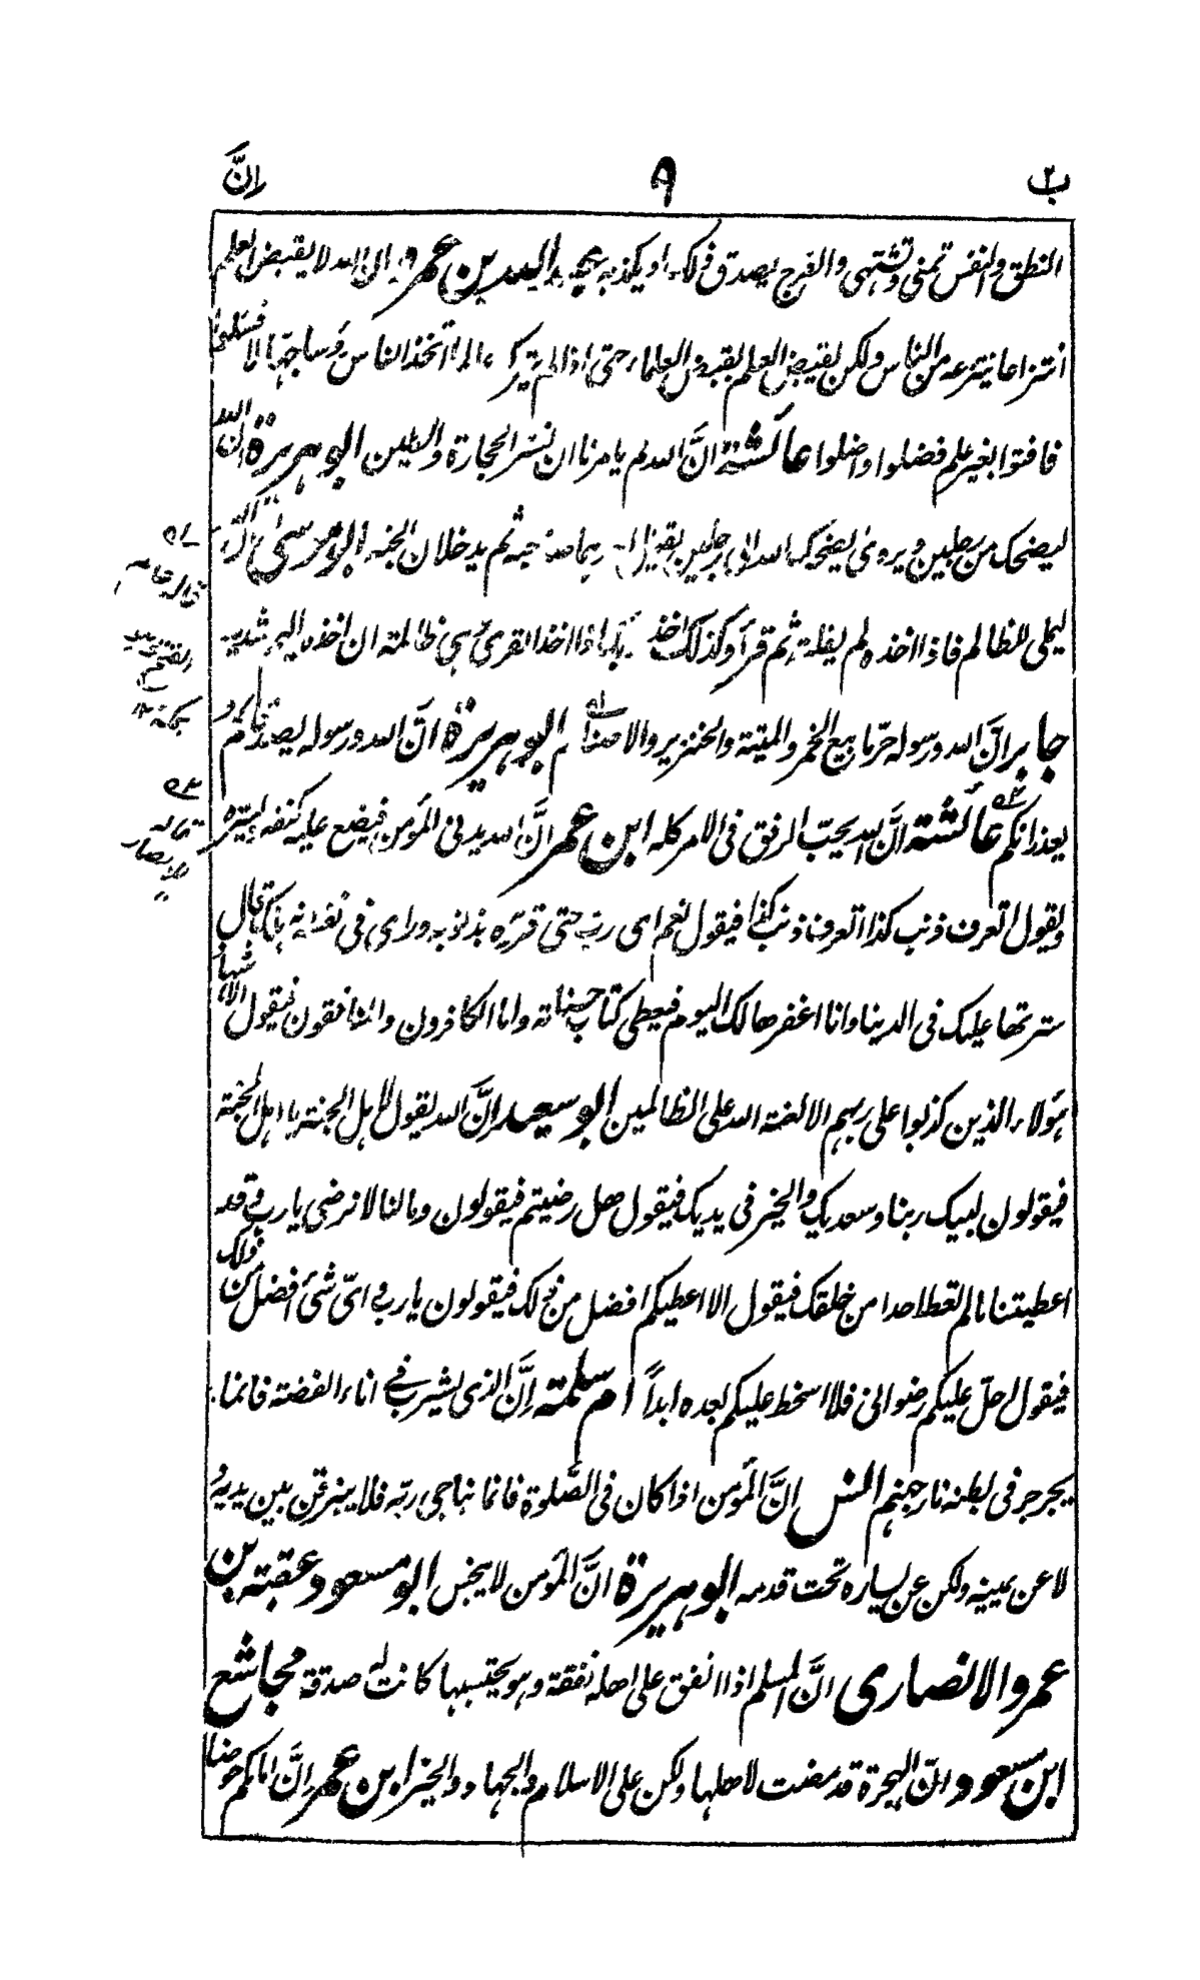 ب۲ ٩ اِنَّ
النطق والنفس تمنى وتشتهى والفرج يصدق ذلك او يكذبه عبد الله بن عمرو ان الله لا يقبض العلم
انتزاعا ينتزعه من الناس ولكن يقبض العلم بقبض العلماء حتى اذا لم يترك عالما اتخذ الناس رؤسا جهالا فسئلوا
فافتوا بغير علم فضلوا واضلوا عائشة انَّ الله لم يامرنا ان نستر الحجارة والطين ابو هريرة ان الله
ليضحك من رجلين ويروى يضحك الله الى رجلين يقتل احدهما صاحبه ثم يدخلان الجنه ابو موسى ان الله
ليملى للظالم فاذا اخذه لم يفلته ثم قرأ وكذلك اخذ ربك اذا اخذ القرى وهى ظالمة ان اخذه اليم شديد
جابر انَّ الله ورسوله حرّما بيع الخمر والميتة والخنزير والاصنام ابو هريرة انَّ الله ورسوله يصدقانكم و
يعذرانكم عائشة انَّ الله يحبّ الرفق فى الامر كله ابن عمر انَّ الله يدنى المؤمن فيضع عليه كنفه ويستره
ويقول اتعرف ذنب كذا اتعرف ذنب كذا فيقول نعم اى رب حتى قرّره بذنوبه وراى فى نفسه انه هلك قال
سترتها عليك فى الدنيا وانا اغفرها لك اليوم فيعطى كتاب حسناته واما الكافرون والمنافقون فيقول الاشهاد
هؤلاء الذين كذبوا على ربهم الا لعنة الله على الظالمين ابو سعيد انَّ الله يقول لاهل الجنة يا اهل الجنة
فيقولون لبيك ربنا وسعديك والخير فى يديك فيقول هل رضيتم فيقولون ومالنا لا نرضى يا رب وقد
اعطيتنا مالم تعط احدا من خلقك فيقول الا اعطيكم افضل من ذلك فيقولون يا رب واىّ شئ افضل من ذلك
فيقول احلّ عليكم رضوانى فلا اسخط عليكم بعده ابداً ام سلمة اِنَّ الذى يشرب فے اناء الفضة فانما
يجرجر فى بطنه نار جهنم انس انَّ المؤمن اذا كان فى الصّلوة فانما يناجى ربّه فلا يبزقن بين يديه و
لا عن يمينه ولكن عن يساره تحت قدمه ابو هريرة انَّ المؤمن لا ينجس ابو مسعود عقبة بن
عمرو الانصارى انَّ المسلم اذا انفق على اهله نفقة وهو يحتسبها كانت له صدقة مجاشع
ابن مسعود انّ الهجرة قد مضت لاهلها ولكن على الاسلام والجهاد والخير ابن عمر اِنَّ امامكم حوضا